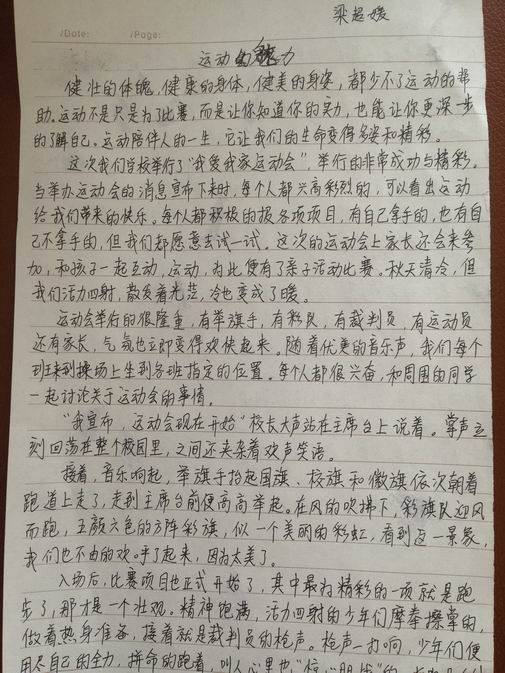 梁超媛
/Date: /Page:
运动的魅力
健壮的体魄,健康的身体,健美的身姿,都少不了运动的帮
助。运动不是只是为了比赛,而是让你知道你的实力,也能让你更深一步
的了解自己。运动陪伴人的一生,它让我们的生命变得多姿和精彩。
这次我们学校举行了“我爱我家运动会”,举行的非常成功与精彩。
当举办运动会的消息宣布下来时,每个人都兴高彩烈的,可以看出运动
给我们带来的快乐。每个人都积极的报各项项目,有自己拿手的,也有自
己不拿手的,但我们都愿意去试一试。这次的运动会上家长还会来参
加,和孩子一起互动,运动,为此便有了亲子活动比赛。秋天清冷,但
我们活力四射,散发着光茫,冷也变成了暖。
运动会举行的很隆重,有举旗手,有彩队,有裁判员,有运动员
还有家长,气氛也立即变得欢快起来。随着优美的音乐声,我们每个
班来到操场上坐到各班指定的位置。每个人都很兴奋,和周围的同学
一起讨论关于运动会的事情。
“我宣布,运动会现在开始”校长大声站在主席台上说着。掌声立
刻回荡在整个校园里,之间还夹杂着欢声笑语。
接着,音乐响起,举旗手抬起国旗、校旗和徽旗依次朝着
跑道上走了,走到主席台前便高高举起。在风的吹拂下,彩旗队迎风
而跑,五颜六色的方阵彩旗,似一个美丽的彩虹,看到这一景象,
我们也不由的欢呼了起来,因为太美了。
入场后,比赛项目也正式开始了,其中最为精彩的一项就是跑
步了,那才是一个壮观。精神饱满,活力四射的少年们摩拳擦掌的,
做着热身准备,接着就是裁判员的枪声。枪声一打响,少年们便
用尽自己的全力,拼命的跑着,叫人心里也“惊心胆战”的